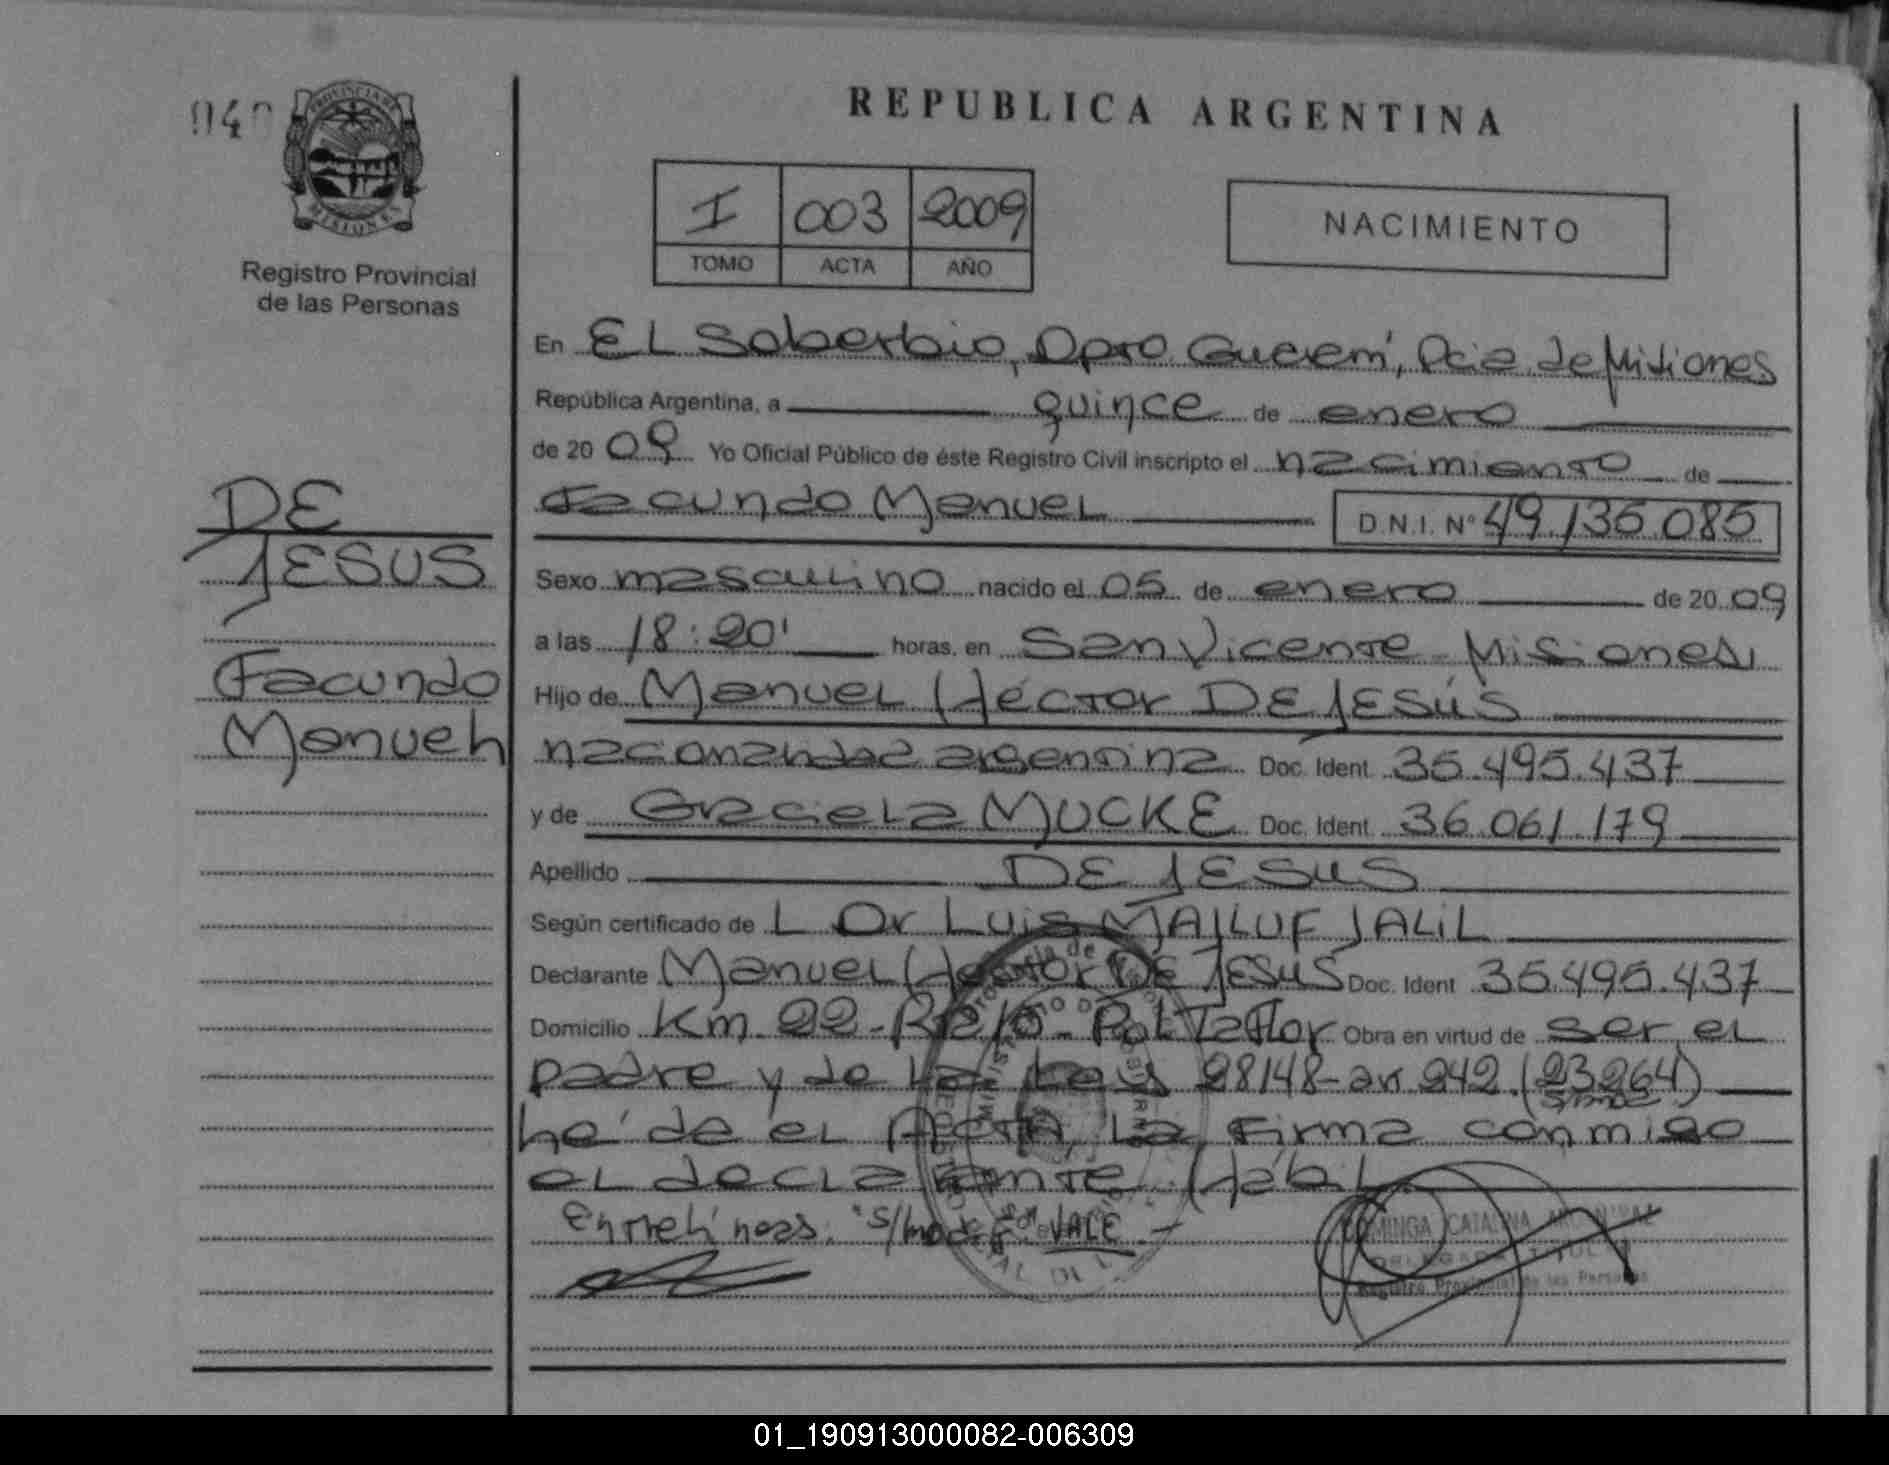 040
PROVINCIA DE
MISIONES
Registro Provincial
de las Personas
DE
JESUS
Facundo
Manuel
REPUBLICA ARGENTINA
I 003 2009
TOMO ACTA AÑO
NACIMIENTO
En EL Soberbio, Dpto Guaraní, Pcia de Misiones
República Argentina, a quince de enero
de 20 09 Yo Oficial Público de éste Registro Civil inscripto el nacimiento de
Facundo Manuel D.N.I. Nº 49.135.085
Sexo masculino nacido el 05 de enero de 20 09
a las 18:20' horas, en San Vicente - Misiones
Hijo de Manuel Héctor DE JESÚS
nacionalidad argentina Doc. Ident. 35.495.437
y de Graciela MUCKE Doc. Ident. 36.061.179
Apellido DE JESUS
Según certificado de L Dr Luis MAJLUF JALIL
Declarante Manuel Hector DE JESUS Doc. Ident. 35.495.437
Domicilio Km 22 - Pol Taflor Obra en virtud de ser el
padre y de la Ley 98148-art 242 (23264)
s/mod.
he de el Acta, la firma conmigo
el declarante Hábil
Entrelíneas: "s/mod." VALE.-
DOMINGA CATALINA
Registro Provincial de las Personas
01_190913000082-006309